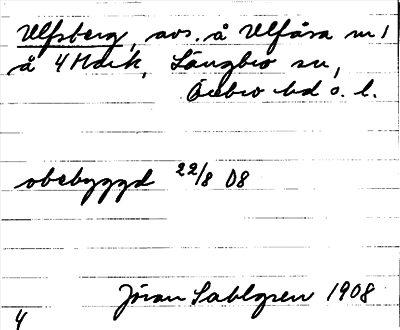 Ulfsberg, avs. å Ulfåsa m,
å 4 Mark, Längbro sn,
Örebro hd o. l.
obebyggd 22/8 08
Jöran Sahlgren 1908
4